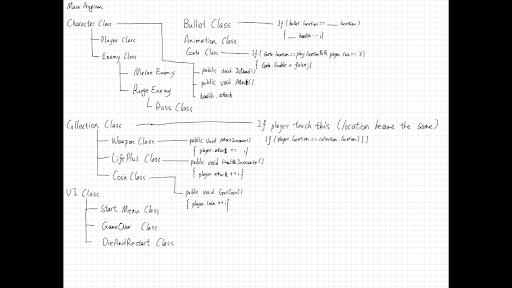 Main Program
Character Class
Player Class
Enemy Class
Melee Enemy
Range Enemy
Boss Class
Bullet Class
If (bullet.location == __.location)
{ __.health--;}
Animation Class
Gate Class
{ Gate.Enable = false;}
public void
public void Attack()
health, attack
Collection Class
If player touch this (location became the same)
If (player.location == collection.location) { }
Weapon Class
public void AttackIncrease()
{ player.attack ++ ;}
LifePlus Class
public void HealthIncrease()
{ player.attack ++;}
Coin Class
public void GetCoin()
{ player.Coin ++;}
UI Class
Start Menu Class
GameOver Class
DieAndRestart Class